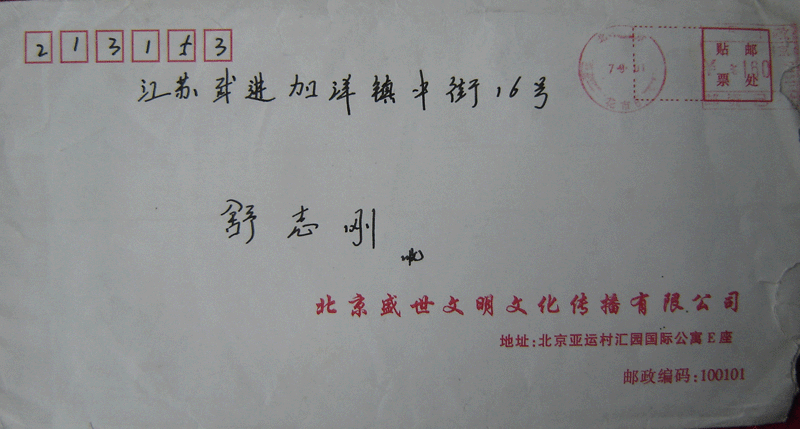 213153
贴 邮
票 处
160
江苏武进加泽镇中街16号
舒志刚
收
北京盛世文明文化传播有限公司
地址:北京亚运村汇园国际公寓E座
邮政编码:100101